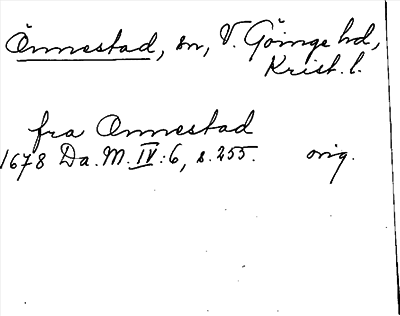 Önnestad, sn, V. Göinge hd,
Krist. l.
fra Onnestad
1678 Da. M. IV: 6, s. 255. orig.